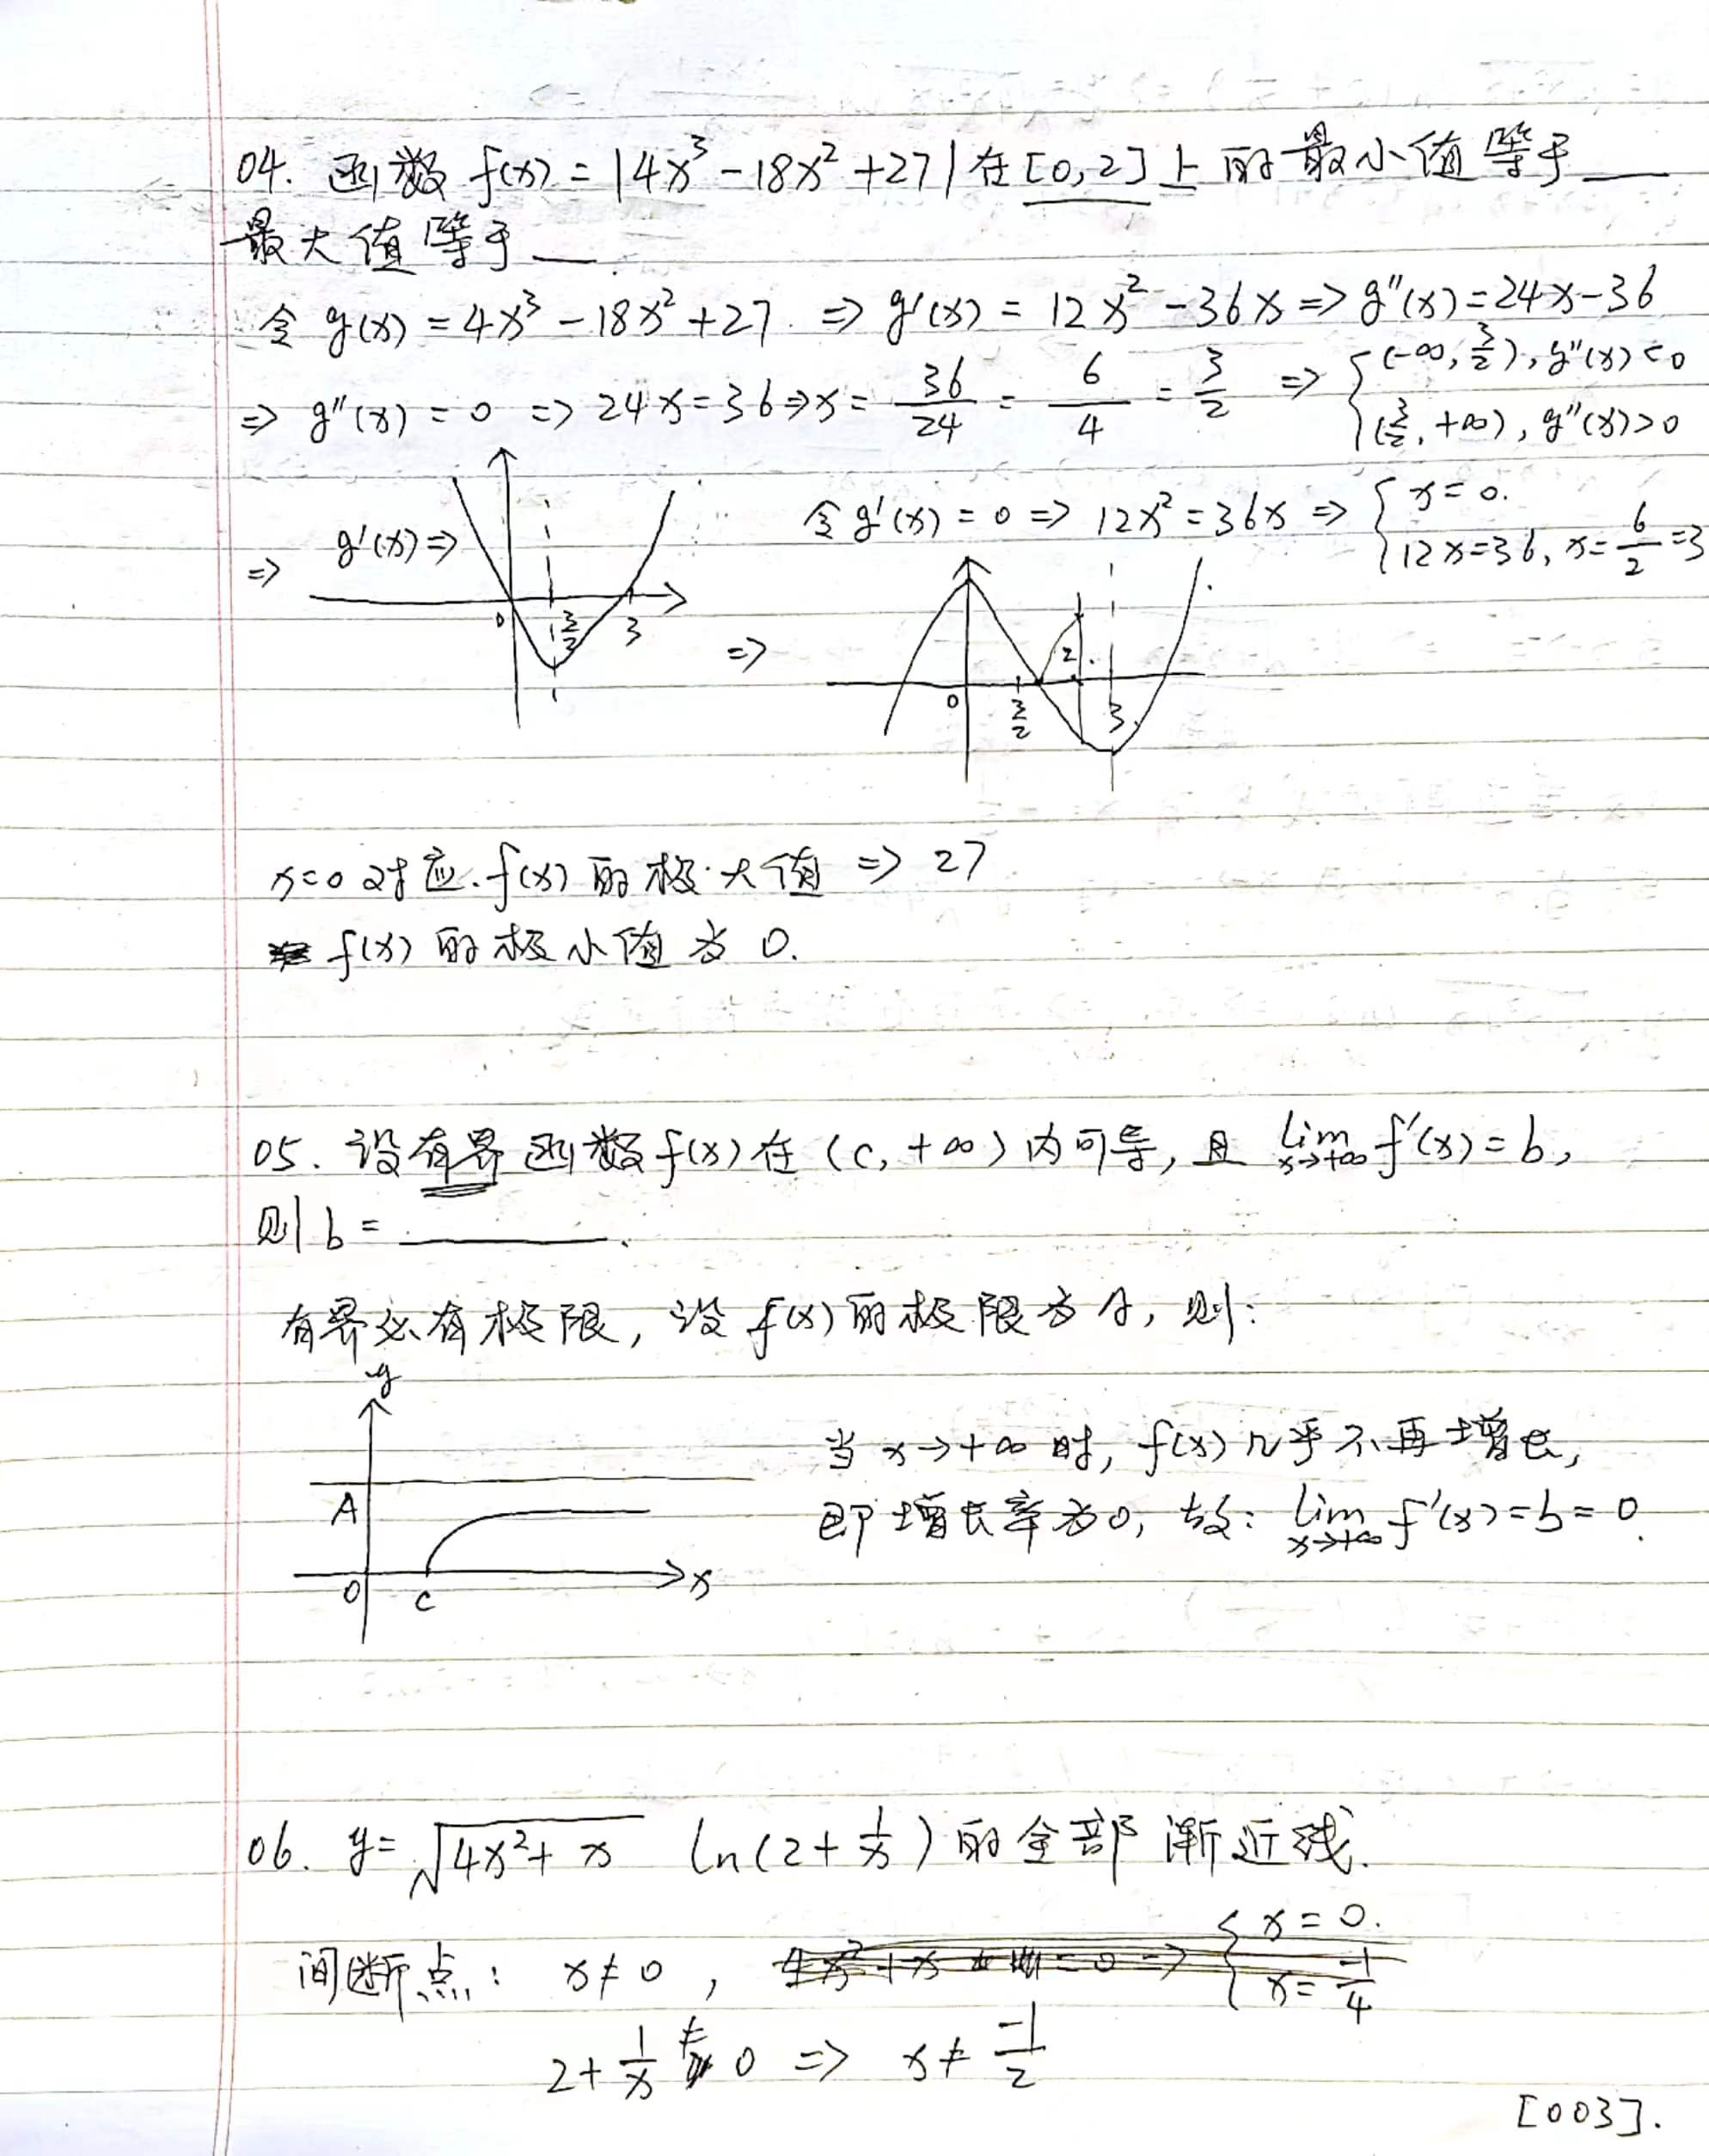 04. 函数 f(x) = |4x³ - 18x² + 27| 在 [0,2] 上的最小值等于___
最大值等于___.
令 g(x) = 4x³ - 18x² + 27. ⇒ g'(x) = 12x² - 36x ⇒ g''(x) = 24x - 36
⇒ g''(x) = 0 ⇒ 24x = 36 ⇒ x = 36/24 = 6/4 = 3/2 ⇒ { (-∞, 3/2), g''(x) < 0
(3/2, +∞), g''(x) > 0
⇒ g'(x) ⇒
0 3/2 3
令 g'(x) = 0 ⇒ 12x² = 36x ⇒ { x = 0.
12x = 36, x = 6/2 = 3
⇒
0 3/2 2 3
x=0 对应 f(x) 的极大值 ⇒ 27
f(x) 的极小值为 0.
05. 设有界函数 f(x) 在 (c, +∞) 内可导, 且 lim x→+∞ f'(x) = b,
则 b = ______.
有界必有极限, 设 f(x) 的极限为 A, 则:
y
A
0 c x
当 x→+∞ 时, f(x) 几乎不再增长,
即增长率为0, 故: lim x→+∞ f'(x) = b = 0.
06. y = √(4x² + x) ln(2 + 1/x) 的全部渐近线.
间断点: x ≠ 0, 4x² + x = 0 ⇒ { x = 0.
x = -1/4
2 + 1/x ≠ 0 ⇒ x ≠ -1/2
[003].